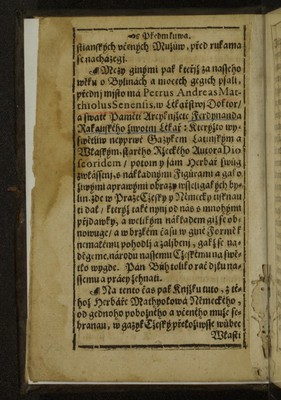 Předmluwa.
stianských včených Mužuw, před rukama
se nacházegj.
Mezy ginými pak kteřjž za nasseho
wěku o Bylinách a mocech gegich psali,
přednj mjsto má Petrus Andreas Mat-
thiolus Senensis, w Lékařstwj Doktor/
a swaté Paměti Arcyknjžete Ferdynanda
Rakauského žiwotnj Lékař: Kterýžto wy-
swětliw neyprwé Gazykem Latinským a
Wlaským, starého Ržeckého Autora Dio
scoridem / potom y sám Herbář swůg
zwlásstnj, s nákladnými Figurami a gako
žiwými a prawými obrazy wsseligakých by-
lin, zde w Praze Cžesky y Německy tisknau
ti dal / kterýž také nynj od nás s mnohými
přjdawky, a welikým nákladem giž se ob-
nowuge / a w brzkém času w giné Formě k
nemalému pohodlj a zaljbenj, gak ž se na-
děgeme, národu nassemu Cžeskému na swě-
tlo wygde. Pán Bůh toliko rač djlu na-
ssemu a prácy žehnati.
Na tento čas pak Knjžku tuto, z té-
hož Herbáře Mathyolowa Německého,
od gednoho pobožného a včeného muže se-
branau, w gazyk Cžeský přeložiwsse wůbec
Wlasti